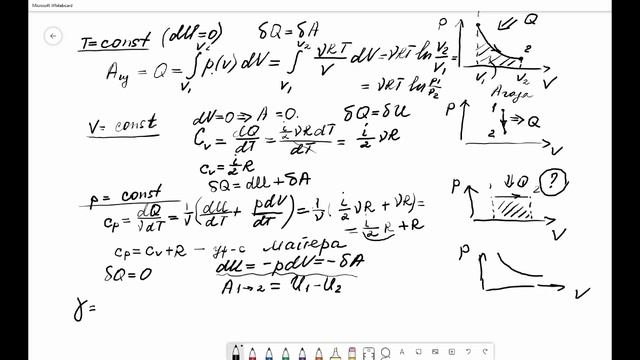 Microsoft Whiteboard
T=const (dU=0) δQ=δA
A = Q = ∫ p(v) dV = ∫ νRT/V dV = νRT ln V₂/V₁ =
V₂ V₁ V₂ V₁
= νRT ln p₁/p₂
p 1 Q 2 V₁ V₂ V
V = const dV=0 ⇒ A=0. δQ=δU
C_v = dQ/dT = i/2 νRdT / dT = i/2 νR
p 1 2 ⇒Q V
c_v = i/2 R
δQ=dU+δA
p = const
c_p = dQ/νdT = 1/ν (dU/dT + pdV/dT) = 1/ν (i/2 νR + νR) =
= i/2 R + R
p Q ? V
c_p = c_v + R – ур-е Майера
δQ=0 dU = –pdV = –δA
A₁→₂ = U₁–U₂
p V
γ=